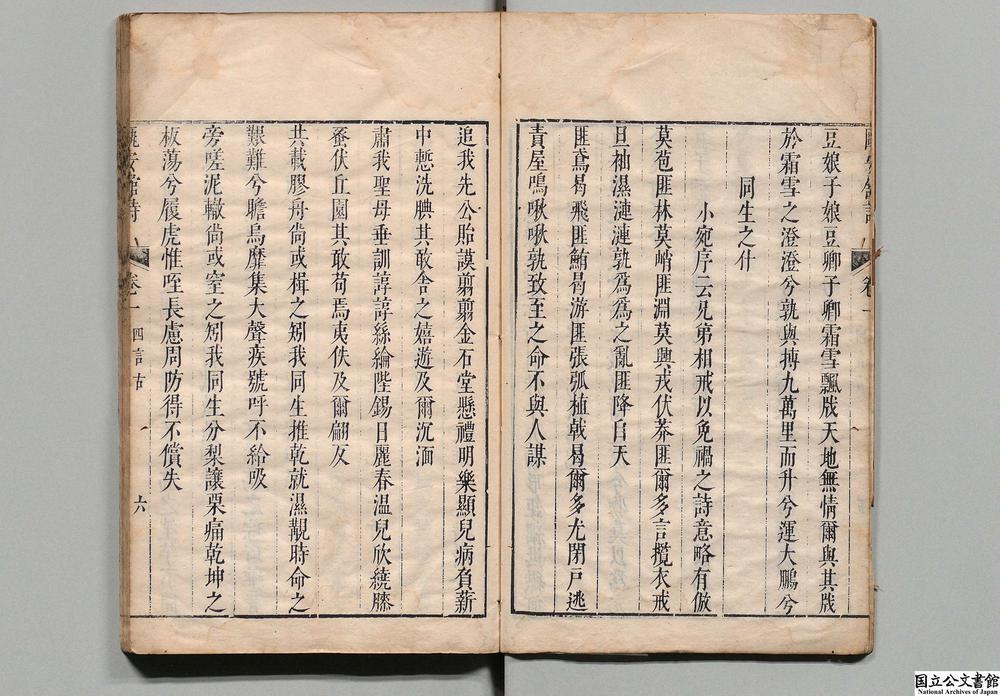 豆娘子娘豆卿子卿霜雪飄戕天地無情爾與其戕
於霜雪之澄澄兮孰與摶九萬里而升兮運大鵬兮
同生之什
小宛序云兄弟相戒以免禍之詩意略有倣
莫苞匪林莫峭匪淵莫興戎伏莽匪爾多言攬衣戒
旦袖濕漣漣孰爲爲之亂匪降自天
匪鳶曷飛匪鮪曷游匪張弧植戟曷爾多尤閉戶逃
責屋鳴啾啾孰致至之命不與人謀
追我先公貽謨翦翦金石堂懸禮明樂顯兒病負薪
中慙洗腆其敢舍之嬉遊及爾沉湎
肅我聖母垂訓諄諄絲綸陛錫日麗春溫兒欣繞膝
蚤伏丘園其敢苟焉夷佚及爾翩反
共載膠舟尚或楫之矧我同生推乾就濕覯時命之
艱難兮瞻烏靡集大聲疾號呼不給吸
旁嗟泥轍尚或窒之矧我同生分梨讓栗痛乾坤之
板蕩兮履虎惟咥長慮周防得不償失
館詩 卷一 四言古 六